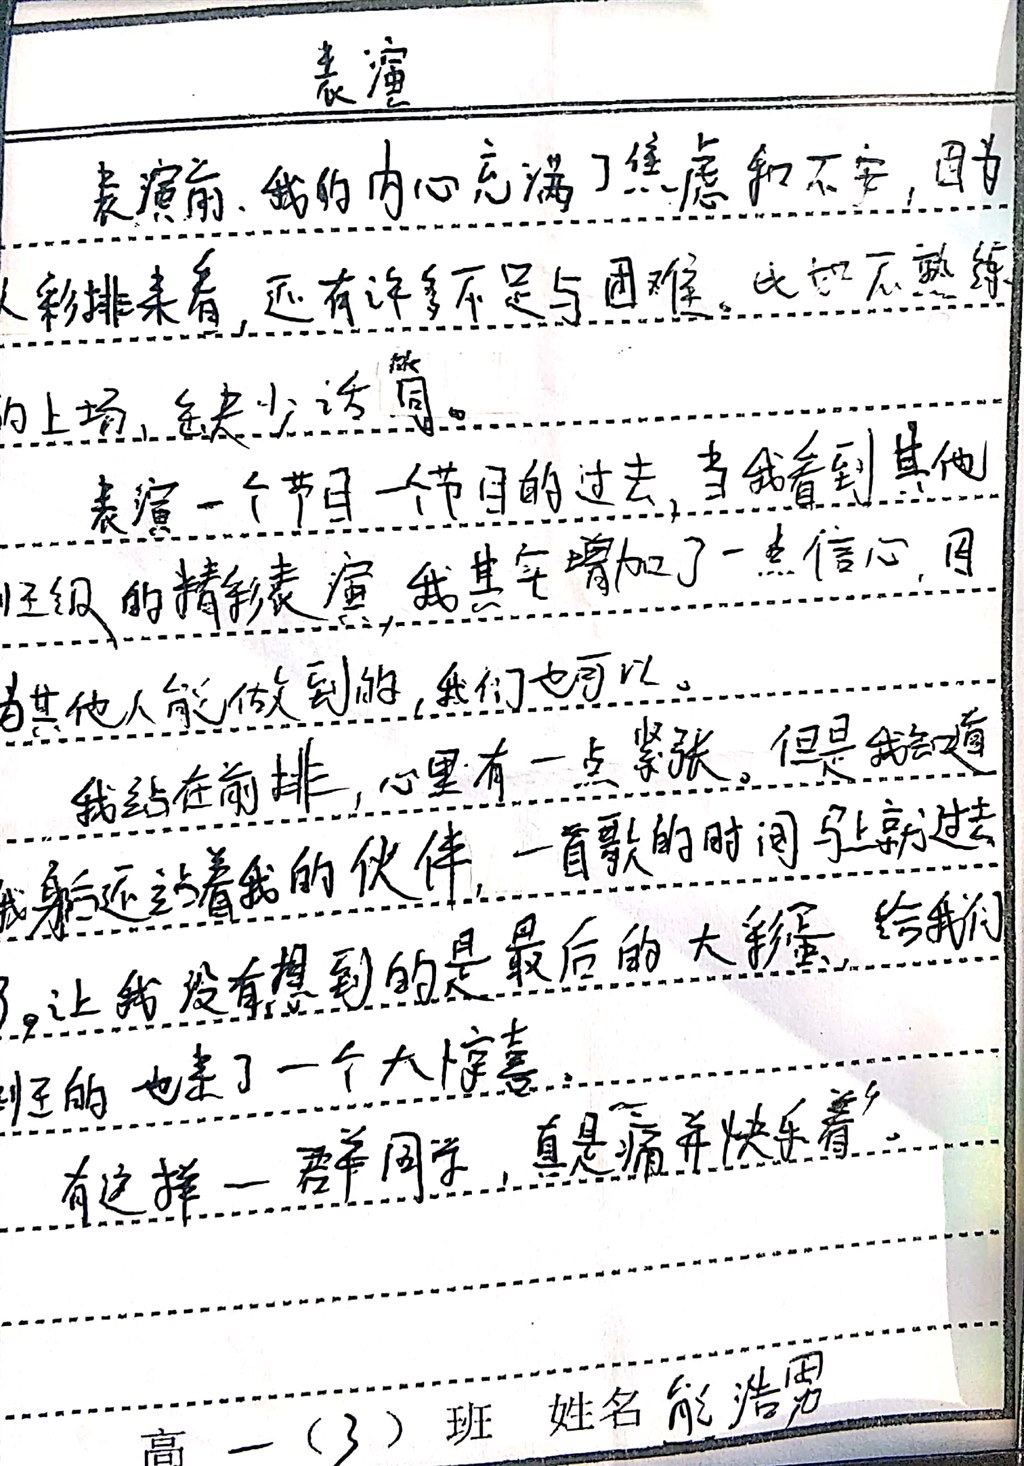 表演
表演前、我的内心充满了焦虑和不安，因为
从彩排来看，还有许多不足与困难。比如不熟练
的上场，缺少话筒。
表演一个节目一个节目的过去，当我看到其他
班级的精彩表演，我其实增加了一点信心，因
为其他人能做到的，我们也可以。
我站在前排，心里有一点紧张。但是我知道
我身后还站着我的伙伴，一首歌的时间马上就过去
了。让我没有想到的是最后的大彩蛋，给我们
班的也来了一个大惊喜。
有这样一群同学，真是“痛并快乐着”。
高一（3）班 姓名 能浩男